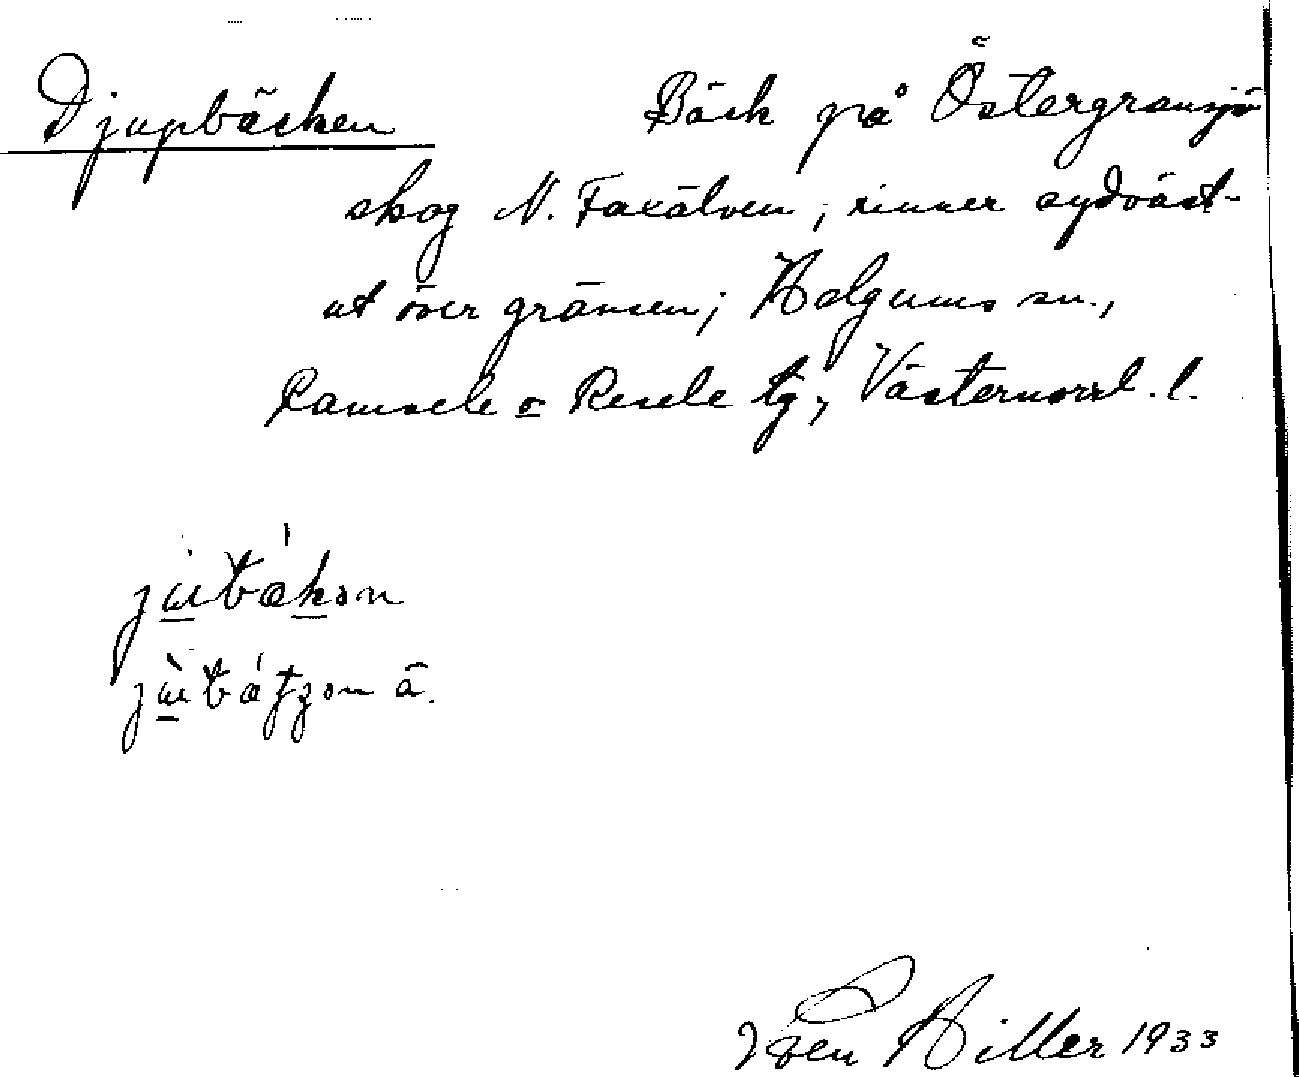 Djupbäcken Bäck på Östergransjö
skog N. Faxälven, rinner sydväst-
ut över gränsen; Helgums sn.,
Ramsele o Resele tg, Västernorrl. l.
Sven Hiller 1933